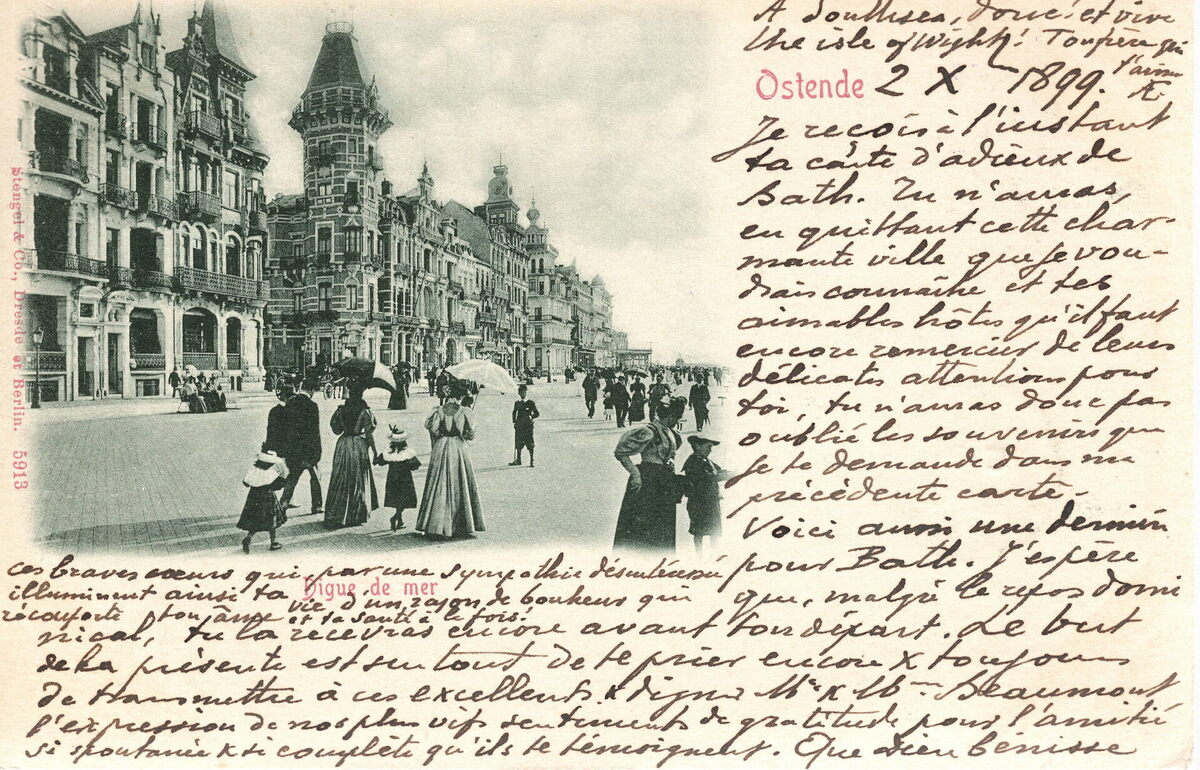 A Southsea, donc! et vive
the isle of Wight! Ton père qui
t'aime
Ostende 2 X 1899.
Je reçois à l'instant
ta carte d'adieux de
Bath. Tu n'auras,
en quittant cette char-
mante ville que je vou-
drais connaître et tes
aimables hôtes qu'il faut
encore remercier de leurs
délicates attentions pour
toi, tu n'auras donc pas
oublié les souvenirs que
je te demande dans ma
précédente carte.
Voici aussi une dernière
pour Bath. J'espère
que, malgré le repos domi
nical, tu la recevras encore avant ton départ. Le but
de la présente est surtout de te prier encore & toujours
de transmettre à ces excellents & dignes Mr & Mme Beaumont
l'expression de nos plus vifs sentiments de gratitude pour l'amitié
si spontanée & si complète qu'ils te témoignent. Que Dieu bénisse
ces braves cœurs qui par une sympathie désintéressée
illuminent ainsi ta vie d'un rayon de bonheur qui
réconforte ton âme et ta santé à la fois!
Digue de mer
Stengel & Co., Dresde et Berlin. 5913